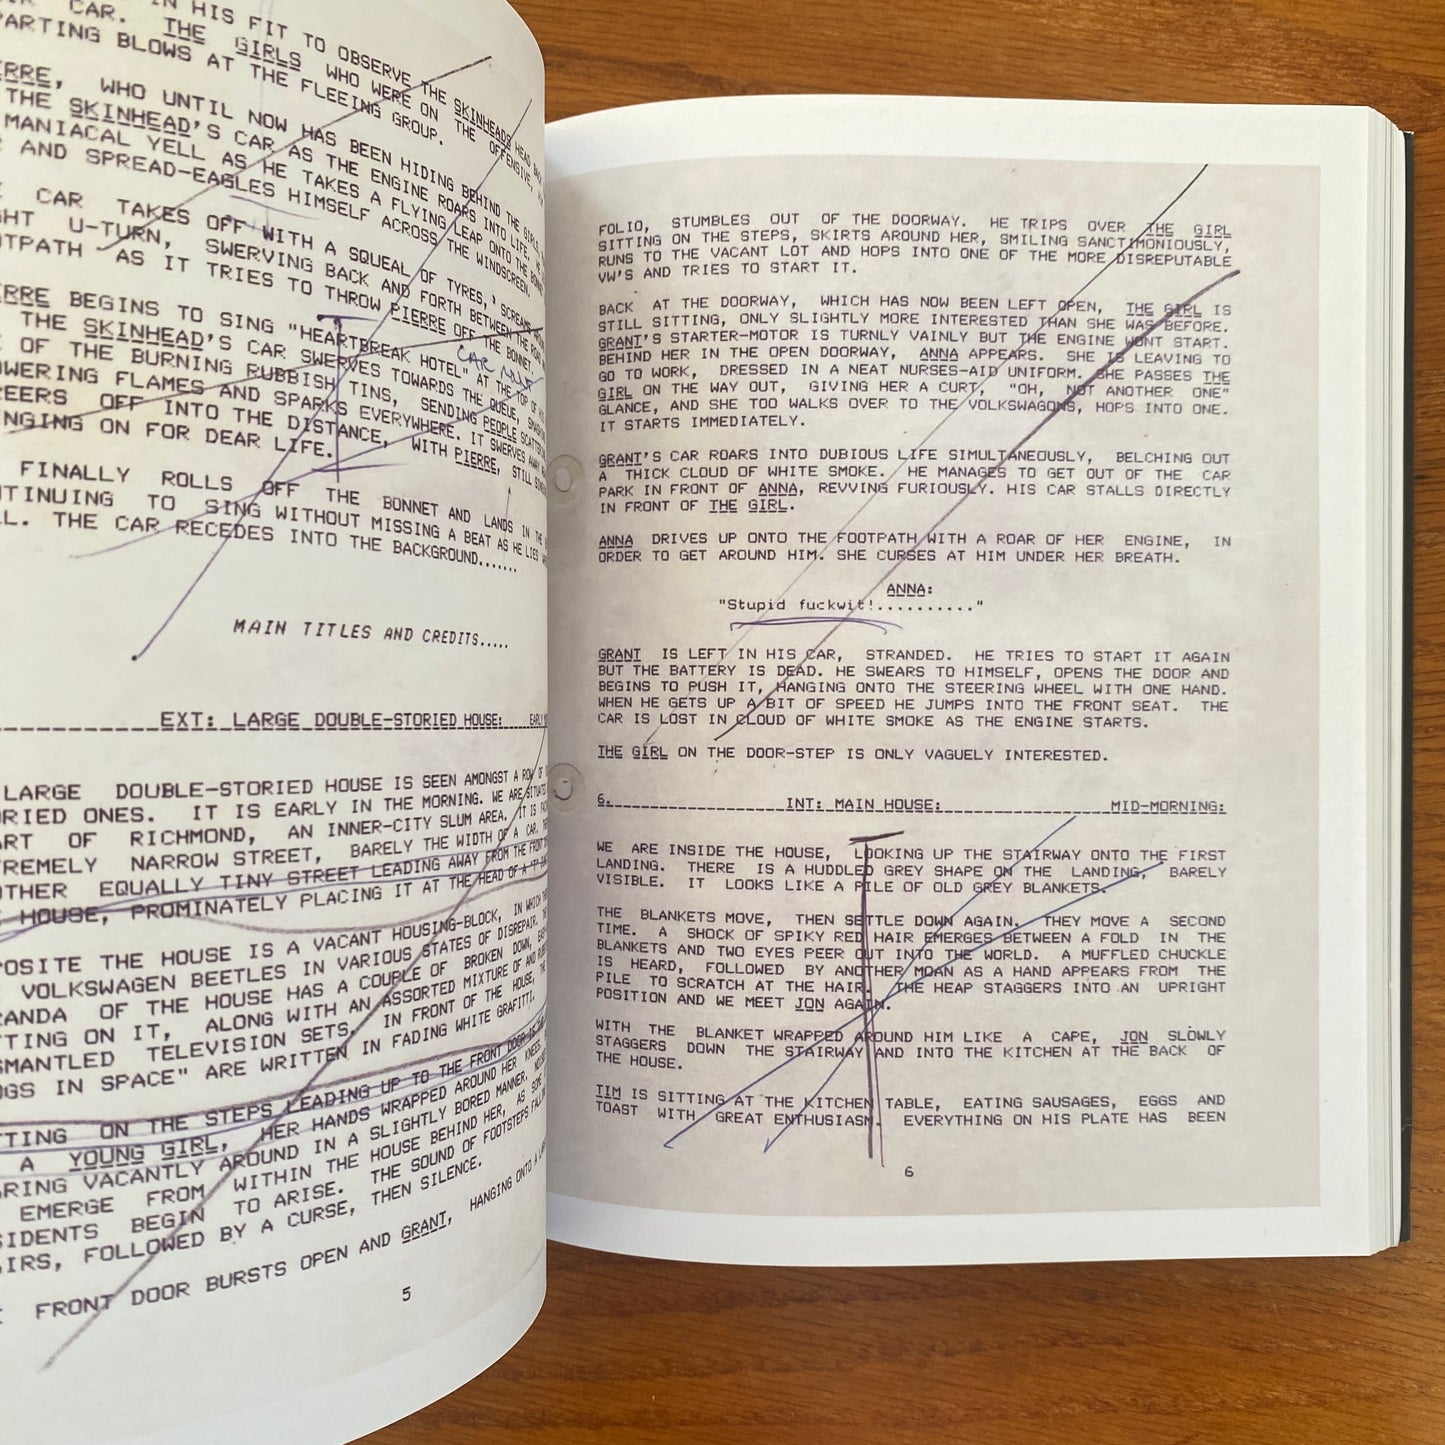 IN HIS FIT TO OBSERVE THE SKINHEADS HEAD
CAR. THE GIRLS WHO WERE ON THE OFFENSIVE,
PARTING BLOWS AT THE FLEEING GROUP.
WHO UNTIL NOW HAS BEEN HIDING BEHIND THE GIRLS
THE SKINHEAD'S CAR AS THE ENGINE ROARS INTO LIFE. HE
MANIACAL YELL AS HE TAKES A FLYING LEAP ONTO THE BONNET
AND SPREAD-EAGLES HIMSELF ACROSS THE WINDSCREEN.
CAR TAKES OFF WITH A SQUEAL OF TYRES, SCREAMS
U-TURN, SWERVING BACK AND FORTH BETWEEN THE ROAD
AS IT TRIES TO THROW PIERRE OFF THE BONNET.
BEGINS TO SING "HEARTBREAK HOTEL" AT THE TOP OF
CAR
THE SKINHEAD'S CAR SWERVES TOWARDS THE QUEUE,
OF THE BURNING RUBBISH TINS, SENDING PEOPLE
FLAMES AND SPARKS EVERYWHERE. IT SWERVES AWAY
OFF INTO THE DISTANCE, WITH PIERRE, STILL
ON FOR DEAR LIFE.
FINALLY ROLLS OFF THE BONNET AND LANDS IN THE
TO SING WITHOUT MISSING A BEAT AS HE LIES
THE CAR RECEDES INTO THE BACKGROUND.......
MAIN TITLES AND CREDITS.....
EXT: LARGE DOUBLE-STORIED HOUSE:
LARGE DOUBLE-STORIED HOUSE IS SEEN AMONGST A ROW OF
ONES. IT IS EARLY IN THE MORNING. WE ARE SITUATED
OF RICHMOND, AN INNER-CITY SLUM AREA. IT IS
NARROW STREET, BARELY THE WIDTH OF A CAR.
EQUALLY TINY STREET LEADING AWAY FROM THE FRONT
HOUSE, PROMINATELY PLACING IT AT THE HEAD OF A "T"
THE HOUSE IS A VACANT HOUSING-BLOCK, IN WHICH
VOLKSWAGEN BEETLES IN VARIOUS STATES OF DISREPAIR.
OF THE HOUSE HAS A COUPLE OF BROKEN DOWN,
ON IT, ALONG WITH AN ASSORTED MIXTURE OF AND
TELEVISION SETS. IN FRONT OF THE HOUSE,
IN SPACE" ARE WRITTEN IN FADING WHITE GRAFITTI.
ON THE STEPS LEADING UP TO THE FRONT DOOR IS
A YOUNG GIRL, HER HANDS WRAPPED AROUND HER KNEES
VACANTLY AROUND IN A SLIGHTLY BORED MANNER.
EMERGE FROM WITHIN THE HOUSE BEHIND HER, AS SOME
BEGIN TO ARISE. THE SOUND OF FOOTSTEPS
FOLLOWED BY A CURSE, THEN SILENCE.
FRONT DOOR BURSTS OPEN AND GRANT, HANGING ONTO A
5
FOLIO, STUMBLES OUT OF THE DOORWAY. HE TRIPS OVER THE GIRL
SITTING ON THE STEPS, SKIRTS AROUND HER, SMILING SANCTIMONIOUSLY,
RUNS TO THE VACANT LOT AND HOPS INTO ONE OF THE MORE DISREPUTABLE
VW'S AND TRIES TO START IT.
BACK AT THE DOORWAY, WHICH HAS NOW BEEN LEFT OPEN, THE GIRL IS
STILL SITTING, ONLY SLIGHTLY MORE INTERESTED THAN SHE WAS BEFORE.
GRANT'S STARTER-MOTOR IS TURNLY VAINLY BUT THE ENGINE WONT START.
BEHIND HER IN THE OPEN DOORWAY, ANNA APPEARS. SHE IS LEAVING TO
GO TO WORK, DRESSED IN A NEAT NURSES-AID UNIFORM. SHE PASSES THE
GIRL ON THE WAY OUT, GIVING HER A CURT, "OH, NOT ANOTHER ONE"
GLANCE, AND SHE TOO WALKS OVER TO THE VOLKSWAGONS, HOPS INTO ONE.
IT STARTS IMMEDIATELY.
GRANT'S CAR ROARS INTO DUBIOUS LIFE SIMULTANEOUSLY, BELCHING OUT
A THICK CLOUD OF WHITE SMOKE. HE MANAGES TO GET OUT OF THE CAR
PARK IN FRONT OF ANNA, REVVING FURIOUSLY. HIS CAR STALLS DIRECTLY
IN FRONT OF THE GIRL.
ANNA DRIVES UP ONTO THE FOOTPATH WITH A ROAR OF HER ENGINE, IN
ORDER TO GET AROUND HIM. SHE CURSES AT HIM UNDER HER BREATH.
ANNA:
"Stupid fuckwit!.........."
GRANT IS LEFT IN HIS CAR, STRANDED. HE TRIES TO START IT AGAIN
BUT THE BATTERY IS DEAD. HE SWEARS TO HIMSELF, OPENS THE DOOR AND
BEGINS TO PUSH IT, HANGING ONTO THE STEERING WHEEL WITH ONE HAND.
WHEN HE GETS UP A BIT OF SPEED HE JUMPS INTO THE FRONT SEAT. THE
CAR IS LOST IN CLOUD OF WHITE SMOKE AS THE ENGINE STARTS.
THE GIRL ON THE DOOR-STEP IS ONLY VAGUELY INTERESTED.
6. INT: MAIN HOUSE: MID-MORNING:
WE ARE INSIDE THE HOUSE, LOOKING UP THE STAIRWAY ONTO THE FIRST
LANDING. THERE IS A HUDDLED GREY SHAPE ON THE LANDING, BARELY
VISIBLE. IT LOOKS LIKE A PILE OF OLD GREY BLANKETS.
THE BLANKETS MOVE, THEN SETTLE DOWN AGAIN. THEY MOVE A SECOND
TIME. A SHOCK OF SPIKY RED HAIR EMERGES BETWEEN A FOLD IN THE
BLANKETS AND TWO EYES PEER OUT INTO THE WORLD. A MUFFLED CHUCKLE
IS HEARD, FOLLOWED BY ANOTHER MOAN AS A HAND APPEARS FROM THE
PILE TO SCRATCH AT THE HAIR. THE HEAP STAGGERS INTO AN UPRIGHT
POSITION AND WE MEET JON AGAIN.
WITH THE BLANKET WRAPPED AROUND HIM LIKE A CAPE, JON SLOWLY
STAGGERS DOWN THE STAIRWAY AND INTO THE KITCHEN AT THE BACK OF
THE HOUSE.
TIM IS SITTING AT THE KITCHEN TABLE, EATING SAUSAGES, EGGS AND
TOAST WITH GREAT ENTHUSIASM. EVERYTHING ON HIS PLATE HAS BEEN
6